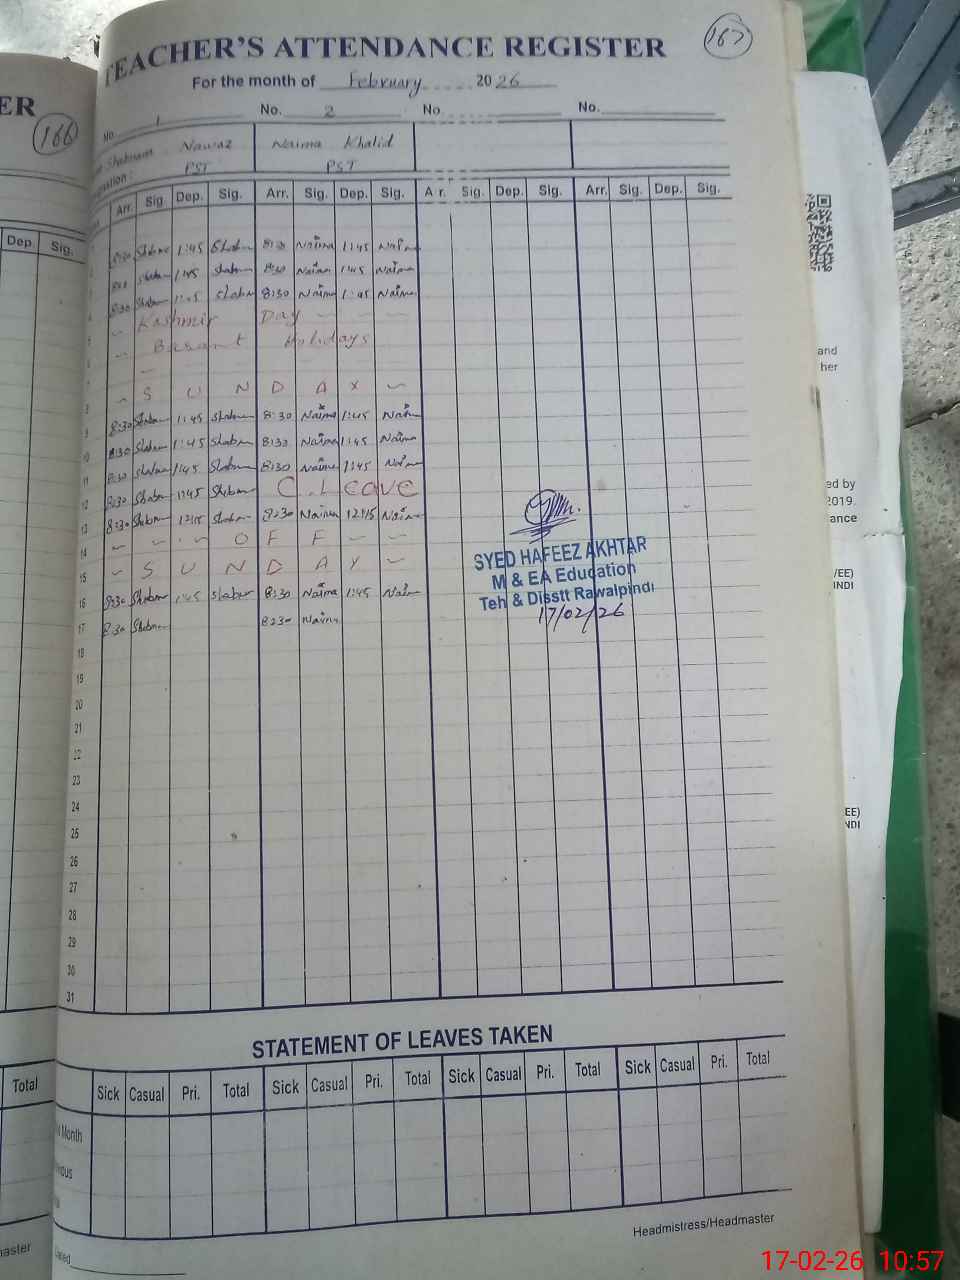 TEACHER'S ATTENDANCE REGISTER
167
For the month of February 2026
ER
166
No. 1 No. 2 No. No.
Shabnam Nawaz Naima Khalid
PST PST
Arr. Sig. Dep. Sig. Arr. Sig. Dep. Sig. Ar. Sig. Dep. Sig. Arr. Sig. Dep. Sig.
Dep. Sig.
1
2 8:30 1:45 8:30 Naima 1:45 Naima
3 1:45 8:30 Naima 1:45 Naima
4 8:30 1:45 8:30 Naima 1:45 Naima
5 Kashmir Day
6 Basant Holidays
7
8 S U N D A Y
9 8:30 1:45 8:30 Naima 1:45 Naima
10 8:30 1:45 8:30 Naima 1:45 Naima
11 8:30 1:45 8:30 Naima 1:45 Naima
12 8:30 1:45 C. Leave
13 8:30 12:15 8:30 Naima 12:15 Naima
14 O F F
15 S U N D A Y
16 8:30 1:45 8:30 Naima 1:45 Naima
17 8:30 8:30 Naima
SYED HAFEEZ AKHTAR
M & EA Education
Teh & Disstt Rawalpindi
17/02/26
18
19
20
21
22
23
24
25
26
27
28
29
30
31
STATEMENT OF LEAVES TAKEN
Sick Casual Pri. Total Sick Casual Pri. Total Sick Casual Pri. Total Sick Casual Pri. Total
Total
Month
Headmistress/Headmaster
and
her
ed by
2019.
ance
/EE)
INDI
EE)
NDI
17-02-26 10:57